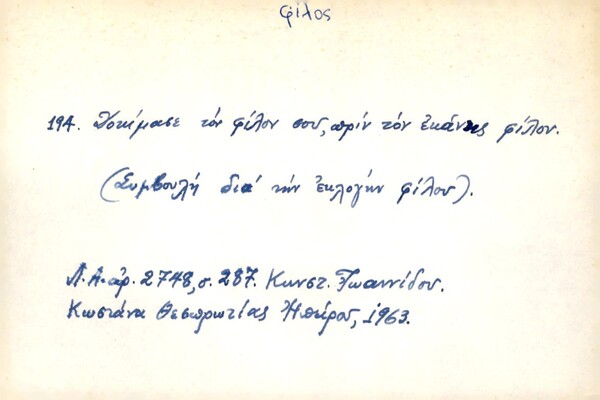 φίλος
194. Δοκίμασε τόν φίλον σου, πρίν τόν ἐκάνῃς φίλον.
(Συμβουλή διά τήν ἐκλογήν φίλου).
Λ.Α. ἀρ. 2748, σ. 287. Κωνστ. Ἰωαννίδου.
Κωστάνα Θεσπρωτίας Ἠπείρου, 1963.